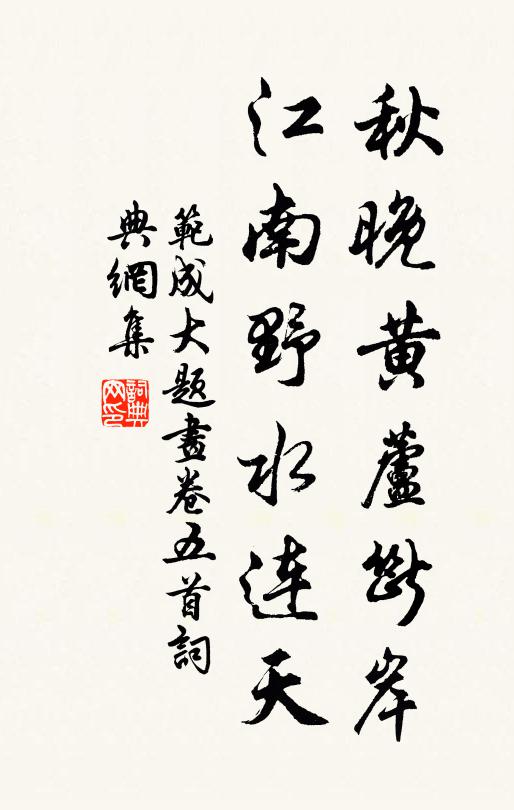 秋晚黃蘆斷岸
江南野水連天
範成大題畫卷五首詞
典網集
詞典網印